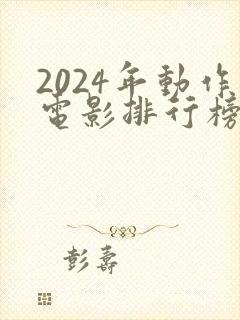 2024年動作
電影排行榜
彭壽